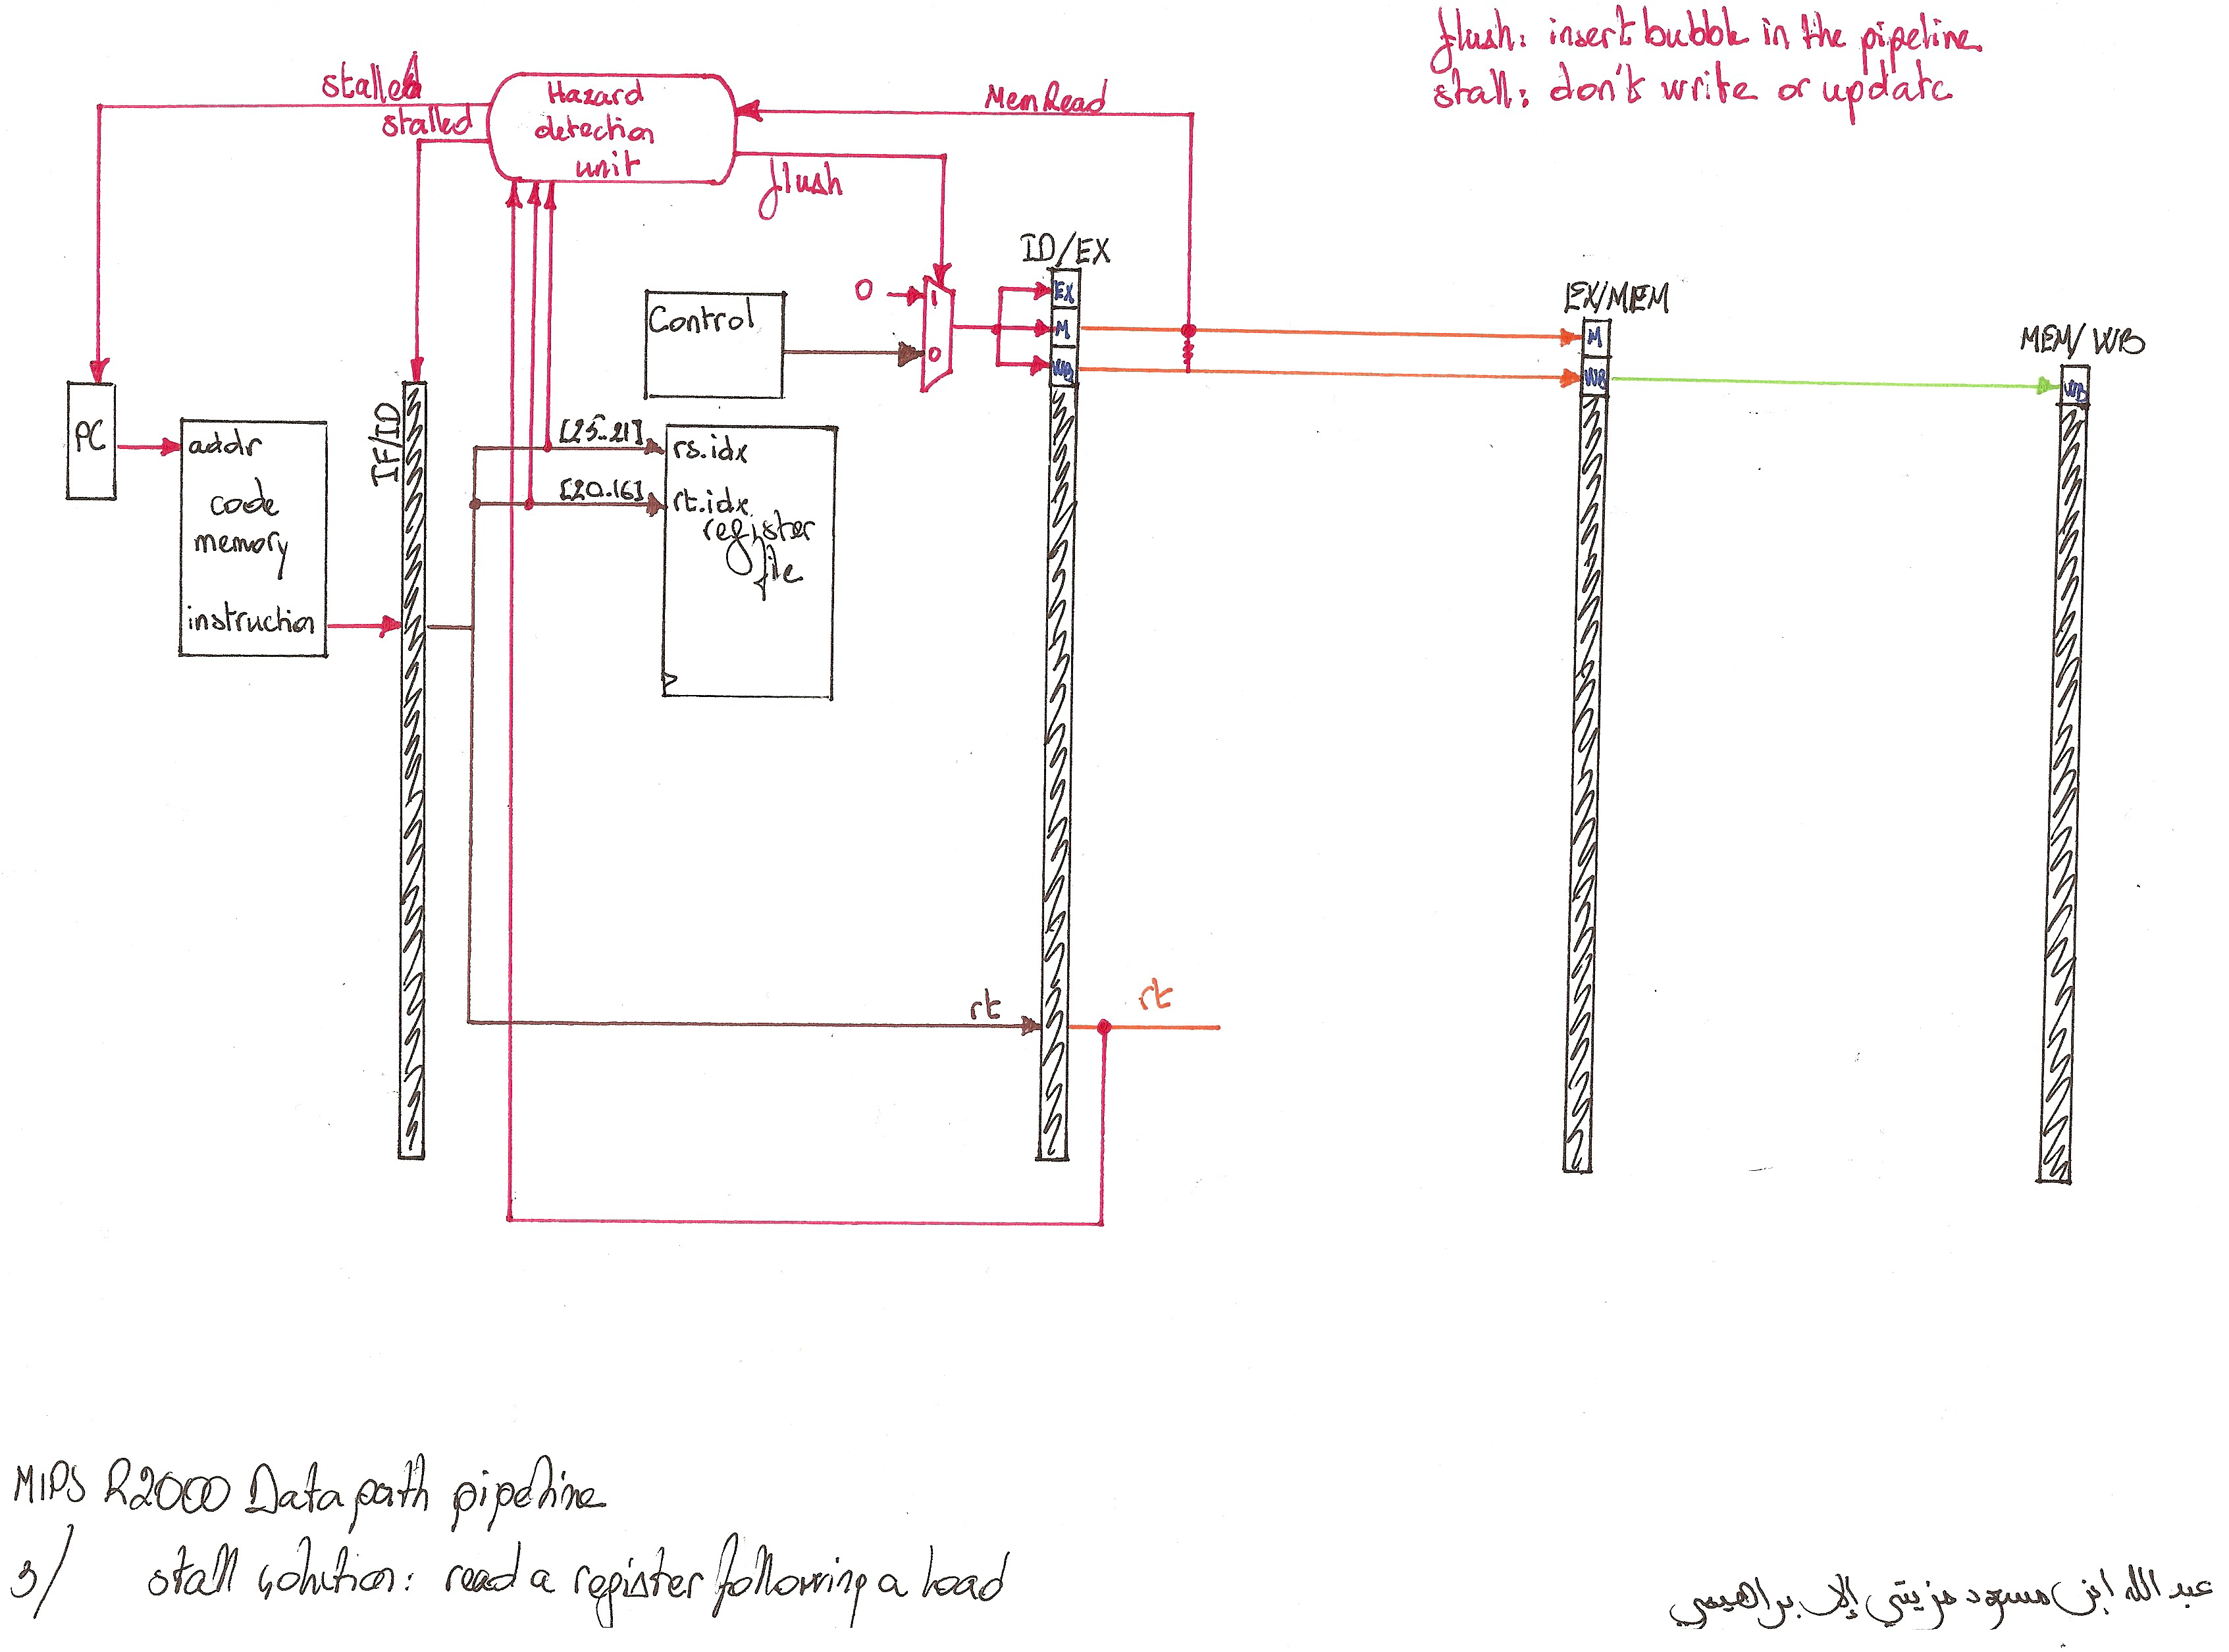 flush: insert bubble in the pipeline
stall: don't write or update
stalled
stalled
Hazard
detection
unit
MemRead
flush
ID/EX
EX
M
WB
EX/MEM
M
WB
MEM/WB
WB
0
1
0
Control
PC
addr
code
memory
instruction
IF/ID
[25-21]
rs.idx
[20.16]
rt.idx
register
file
rt
rt
MIPS R2000 Datapath pipeline
3/ stall solution: read a register following a load
عبد الله ابن مسعود مزيتي الابراهيمي